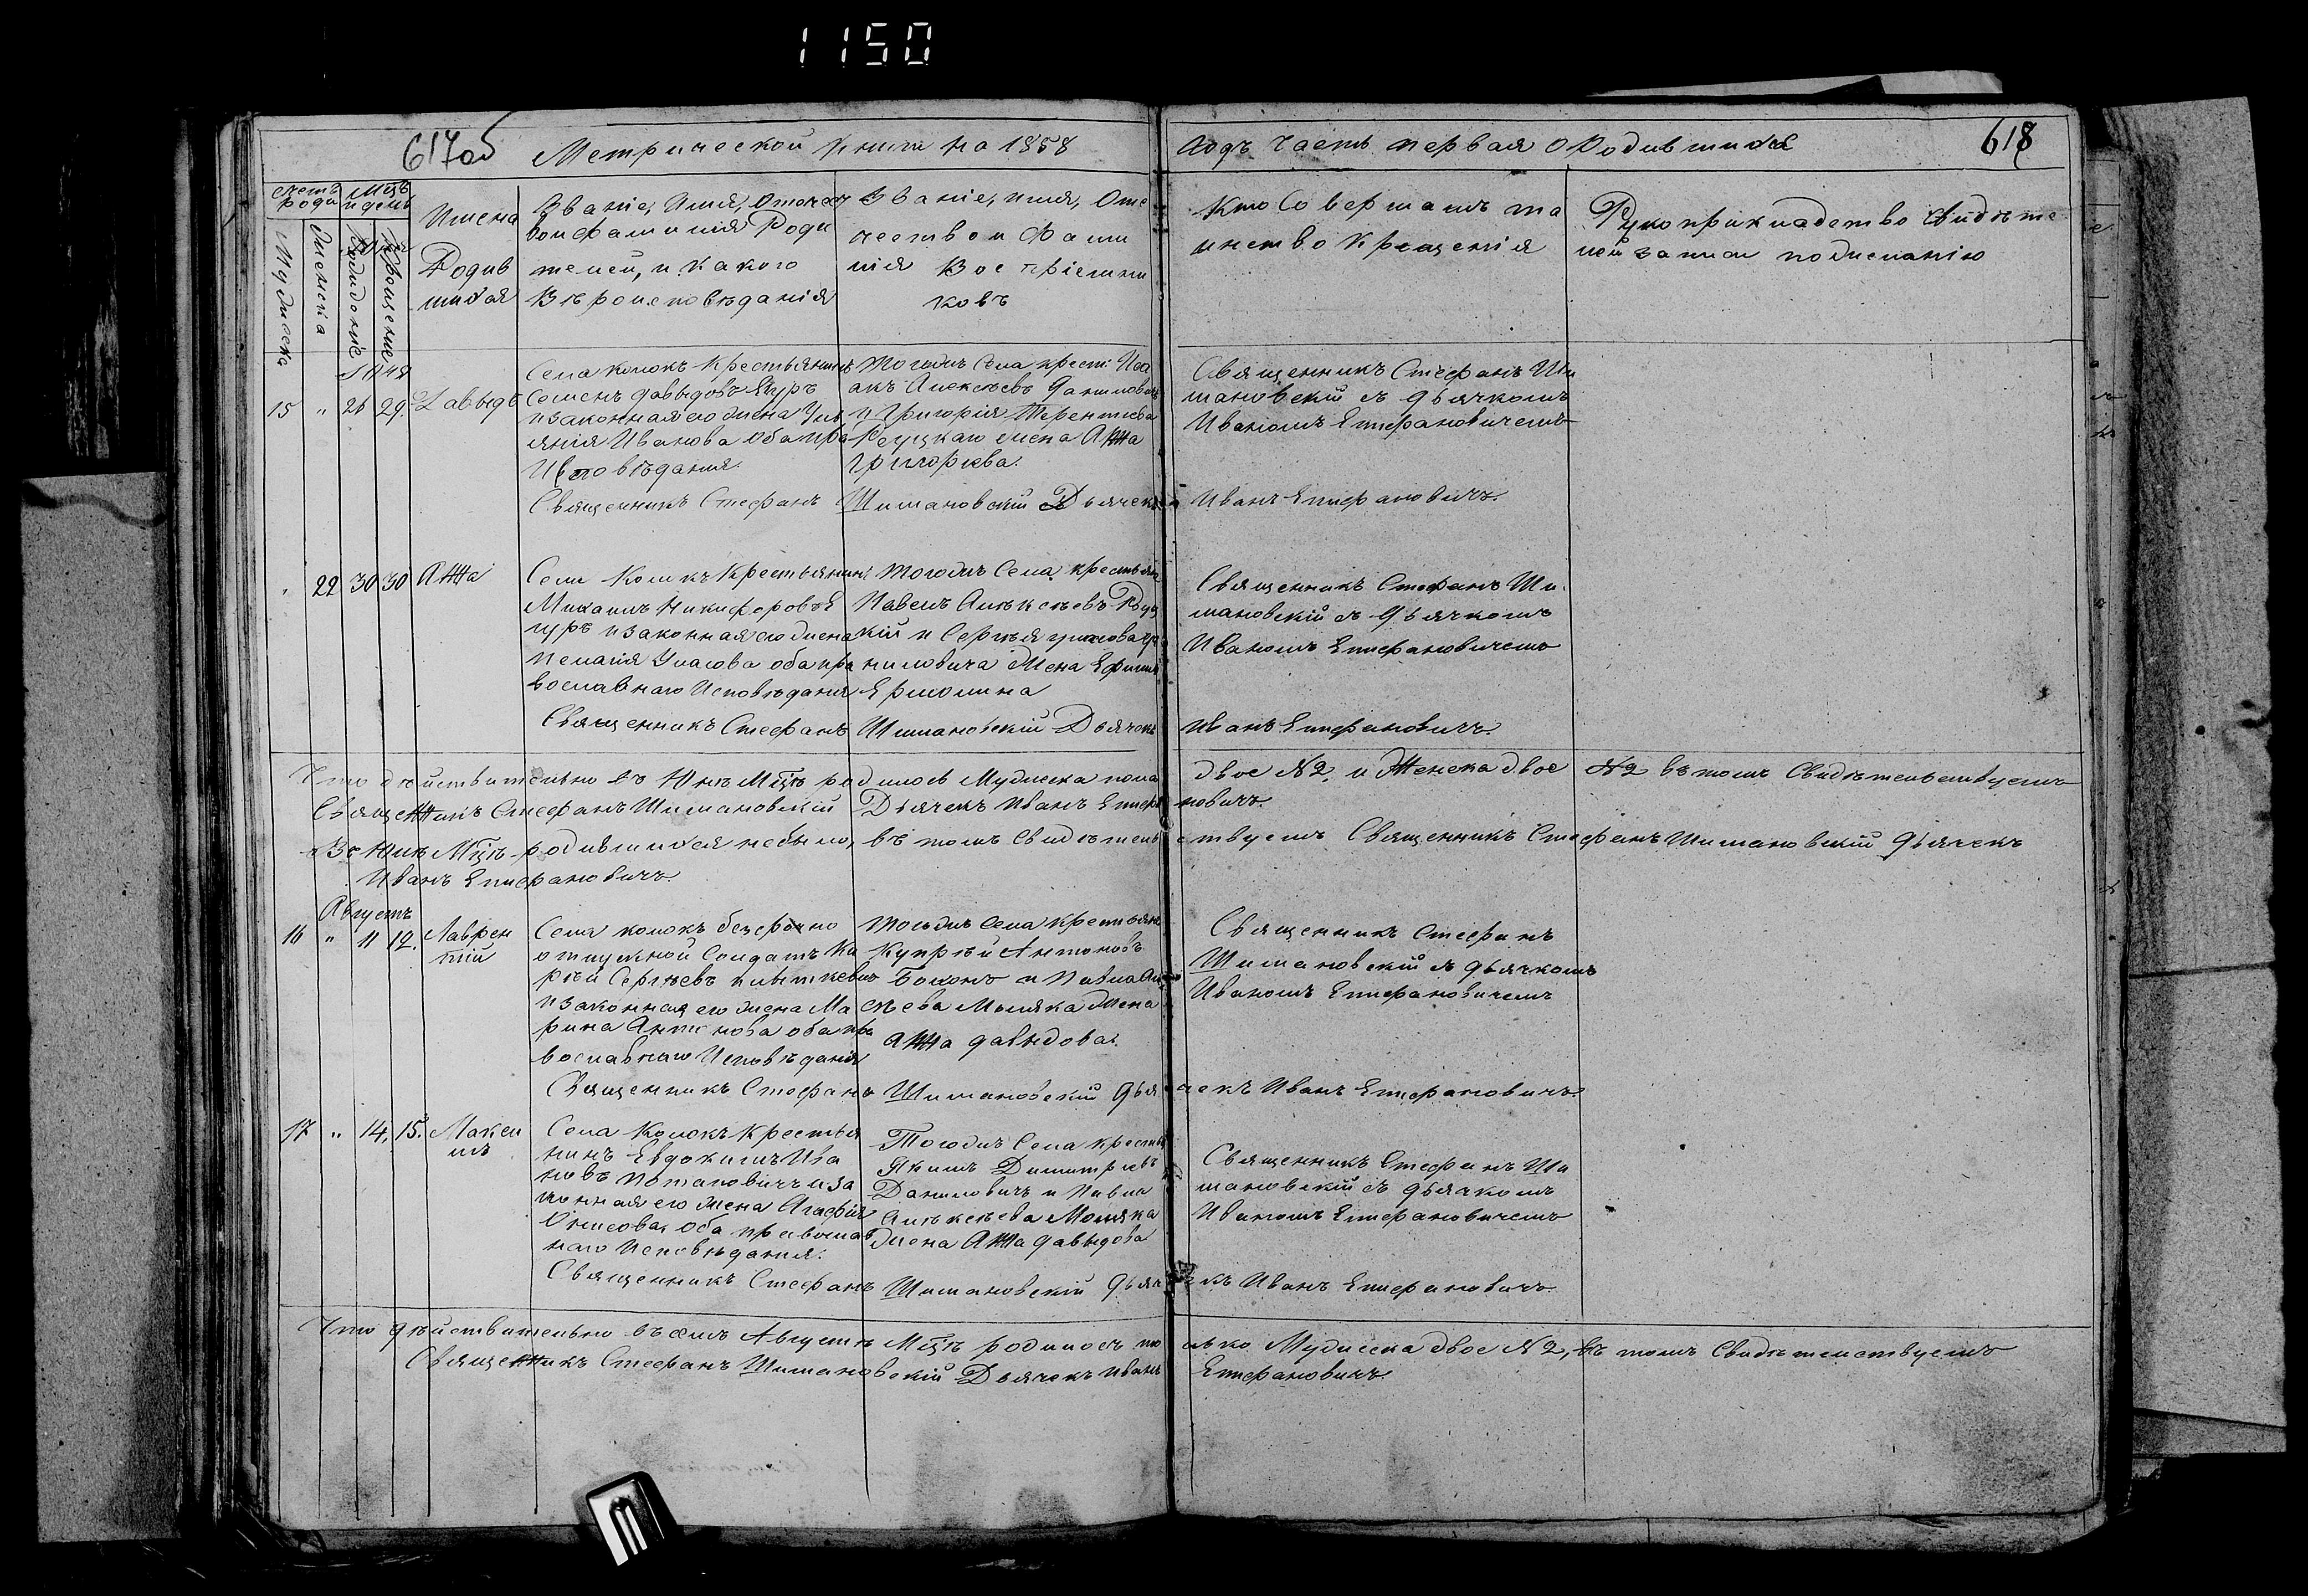 1150
617об Метрической книги на 1858
годъ часть первая о Родившихся 618
счетъ роди
Мцъ и день
Мужеска
Женска
Рождение
Крещение
Имена
Родив
шихся
Званіе, Имя, Отечест
во и фамилія Роди
телей, и какого
Вѣроисповѣданія
Званіе, имя, Оте
чество и Фами
лія Воспріемни
ковъ
Кто совершалъ та
инство Крещенія
Рукоприкладство Свидѣте
лей записи по желанію
15 " 26 29. Давыдъ
Села колокъ Крестьянинъ
Семенъ Давыдовъ
и законная его жена
Иванова оба пра
Исповѣдания.
Тогожъ Села крест: Иса
акъ Алексѣевъ
и Григорія Терентиева
жена Анна
Григориева.
Священникъ Стефанъ Ши
мановскій съ дьячкомъ
Иваномъ Епифановичемъ
Священникъ Стефанъ Шимановскій Дьячекъ Иванъ Епифановичъ.
" 22 30 30 Анна
Села Колокъ Крестьянинъ
Михаилъ Никифоровъ
и законная его жена
Пелагия Уласова оба пра
вославнаго Исповѣдания
Тогожъ Села крестьян
Павелъ Алѣксѣевъ
кій и Сергѣя
жена
Ермолина
Священникъ Стефанъ Ши
мановскій съ дьячкомъ
Иваномъ Епифановичемъ
Священникъ Стефанъ Шимановскій Дьячекъ Иванъ Епифановичъ.
Что дѣйствительно въ Юнѣ Мцѣ родилось Мужеска пола двое №2, и Женска двое №2 въ томъ Свидѣтельствуемъ
Священникъ Стефанъ Шимановскій Дьячекъ Иванъ Епифановичъ.
Во Юлѣ Мцѣ родившихся небыло, въ томъ Свидѣтельствуемъ Священникъ Стефанъ Шимановскій Дьячекъ
Иванъ Епифановичъ.
Августъ
16 " 11 12. Лаврен
тій
Села колокъ безсрочно
отпускной Солдатъ
Сергѣевъ
и законная его жена Ма
рина Антонова оба пра
вославнаго Исповѣдания
Тогожъ Села крестьян
Купрѣй Антоновъ
и Павла
жена
Анна Давыдова.
Священникъ Стефанъ
Шимановскій съ дьячкомъ
Иваномъ Епифановичемъ
Священникъ Стефанъ Шимановскій Дьячекъ Иванъ Епифановичъ.
17 " 14. 15. Макси
мъ
Села Колокъ Крестья
нинъ Евдокимъ Ива
новъ Потаповичъ и за
конная его жена Агафия
оба православ
наго Исповѣдания.
Тогожъ Села крестья
Якимъ Димитриевъ
Даниловичъ и Павла
Алѣксѣева
жена Анна Давыдова
Священникъ Стефанъ Ши
мановскій съ дьячкомъ
Иваномъ Епифановичемъ
Священникъ Стефанъ Шимановскій Дьячекъ Иванъ Епифановичъ.
Что дѣйствительно въ семъ Августѣ Мцѣ родилось только Мужеска двое №2, въ томъ Свидѣтелствуемъ
Священникъ Стефанъ Шимановскій Дьячекъ Иванъ Епифановичъ.